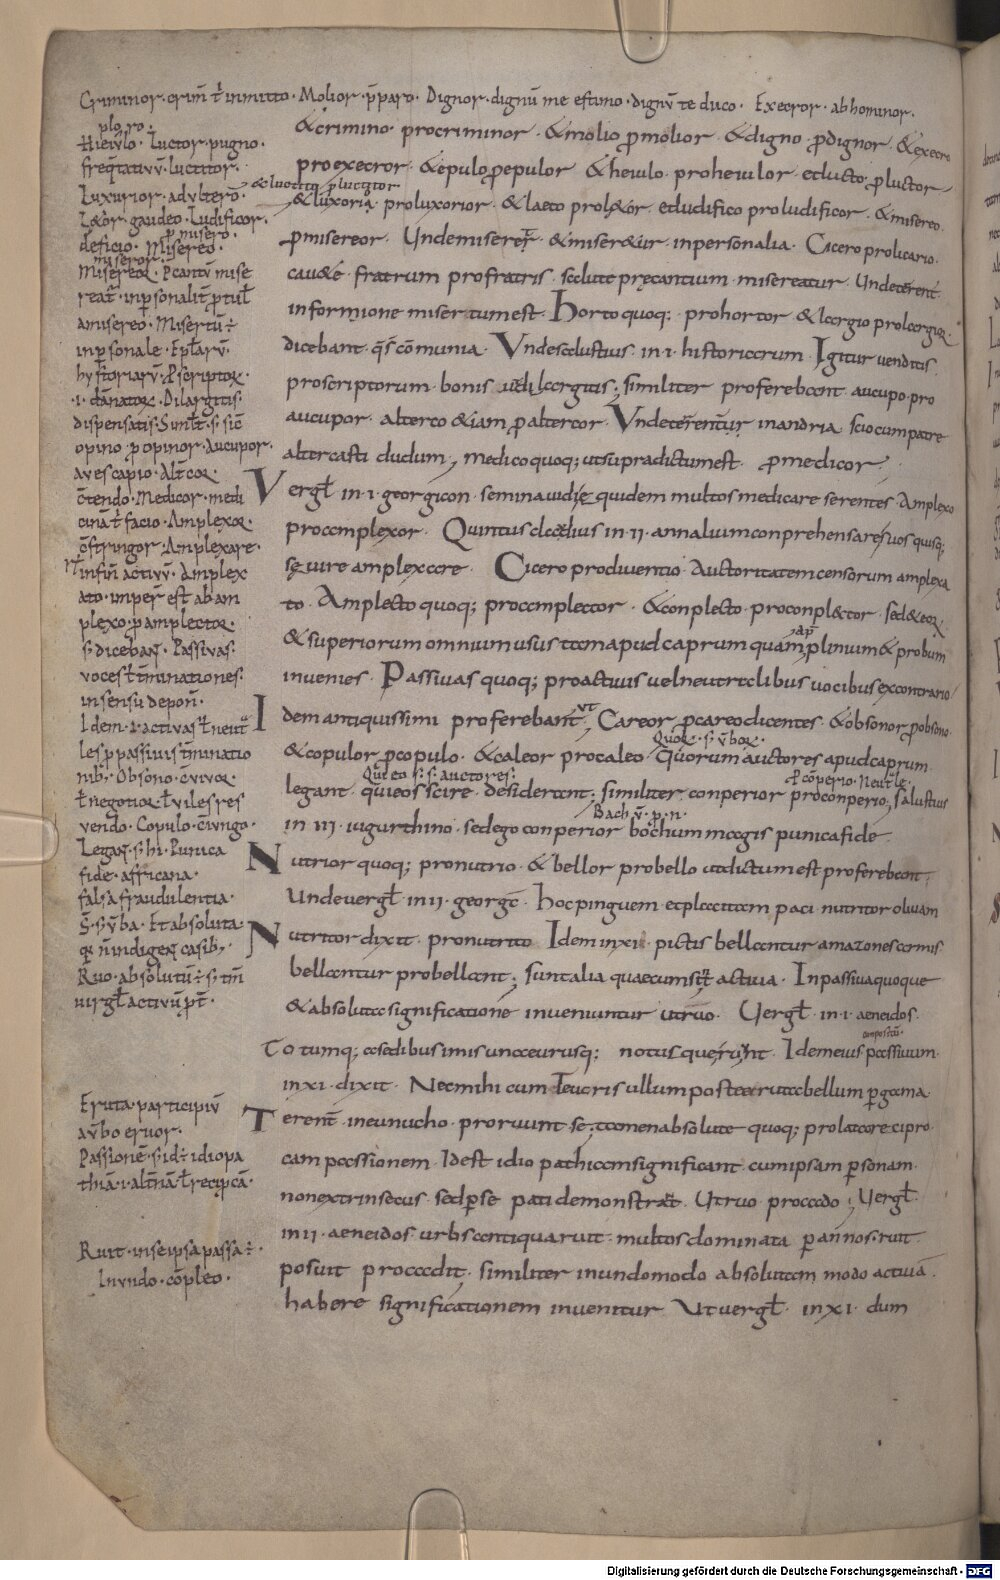 Criminor · crim̄ ł inmitto · Molior · p̄paro · Dignor · dignū me estimo · dignū te duco · Execror · abhominor ·
& crimino · procriminor · & molio ꝓmolior · & digno · ꝓdignor · & execro
pro execror · & epulo ꝓepulor & heiulo · proheiulor · et lucto ꝓluctor
& luxorio · proluxorior · & laeto prol&or · et ludifico proludificor · & misereo
ꝓmisereor · Unde miserer& & miser&ur · inpersonalia · Cicero pro ligario ·
cau&e · fratrum pro fratris · salute precantium · misereatur · Unde terent
in formione misertum est · Horto quoq; · prohortor & largio prolargior
dicebant · q̄s cōmunia · Unde salustius · in · i · historiarum · Igitur venditis
proscriptorum · bonis · vel dilargitis ; similiter proferebant · aucupo · pro
aucupor · alterco & iam ꝓaltercor · Unde terentiur in andria · scio cum patre
altercasti dudum , medico quoq; ut supra dictum est · ꝓmedicor
Vergł in · i · georgicon · semina uidi equidem multos medicare serentes · Amplexo
pro amplexor · Quintus claudius in · ii · annalium conprehensare suos quisq;
se uire amplexare · Cicero pro diuentio · Auctoritatem censorum amplexa
to · Amplecto quoq; pro amplector · & conplecto · pro conpl&tor · sed & eoꝝ
& superiorum omnium usus tam apud caprum quam ap̄ plinium & probum
inuenies · Passiuas quoq; pro actiuis uel neutralibus uocibus ex contrario
Idem antiquissimi proferebant ut · Careor ꝓcareo dicentes · & obsonor ꝓobsono
& copulor ꝓcopulo · & caleor pro caleo · Quorum auctores apud caprum
legant · qui eos scire · desiderant ; similiter conperior pro conperio ; Salustius
in iii · iugurthino · sed ego conperior bochum magis punica fide
Nutrior quoq; pro nutrio · & bellor pro bello ut dictum est proferebant ·
Unde vergł in ii · georḡ · hoc pinguem · et placitam paci nutritor oliuam
Nutritor dixit · pro nutrito Idem in xi · pictis bellantur amazones armis
bellantur pro bellant ; Sunt alia quae cum sint actiua · In passiua quoque
& absoluta significatione inueniuntur ut ruo · Uergł · in · i · aeneidos
Totumq; a sedibus imis una eurusq; notusque ruunt · Idem eius passiuum
in xi · dixit · Nec mihi cum teucris ullum post eruta bellum pergama
Terent̄ · in eunucho · proruunt se ; tamen absolute quoq; prolata recipro
cam passionem · Id est idiopathiam significant · cum ipsam ꝑsonam
non extrinsecus · sed ꝑ se pati demonstrat · Ut ruo · pro cado ; Uergł
in ii · aeneidos · urbs antiqua ruit · multos dominata ꝑ annos · ruit
posuit pro cadit · similiter inundo modo absolutam modo actiuā ·
habere significationem inuenitur Ut uergł · in xi · dum
ploro ·
Heiulo · Luctor · pugno ·
freq̄tatiuū · Luctitor ·
Luxurior · adultero ·
L&or · gaudeo · Ludificor ·
deficio · Misereo ·
ꝓ misero ·
misereor ·
Misereor · Pcantū mise
reat̄ · inꝑsonalit̄ ꝓtul̄
a misereo · Misertū ÷
inꝑsonale · Epłarū ·
hystoriarū · Pscriptoꝝ ·
· i · dānatoꝝ · Dilargitis ·
dispensatis · Similt̄ · s · sic̄
opino · ꝓ opinor · Aucupor ·
aves capio · Altcor ·
c̄tendo · Medicor · medi
cinā ł facio · Amplexor
c̄stringor · Amplexare ·
infin̄ activū · Amplex
ato · imper̄ est ab am
plexo ꝓ amplector ·
s · dicebant · Passivas ·
voces ł t̄minationes ·
in sensu depon̄ ·
Idem · i · activas ł neut̄
les ꝑ passivis t̄minatio
nib; Obsono · c̄vivor
ł negotior ł viles res
vendo · Copulo · c̄iungo ·
Legant · s · hi · Punica
fide · africana ·
falsa fraudulentia ·
S̄ · s · v̄ba · Et absoluta ·
q̄ n̄ indigent casib; ·
Ruo · absolutū ÷ s · tm̄
uirgł activū p̄t ·
Eruta · participiū
a v̄bo eruor ·
Passionē · s · id ÷ idiopa
thiā · i · alt̄nā ł recip̄cā ·
Ruit · in se ipsa passa ÷ ·
Inundo · cōpleo ·
Digitalisierung gefördert durch die Deutsche Forschungsgemeinschaft - DFG